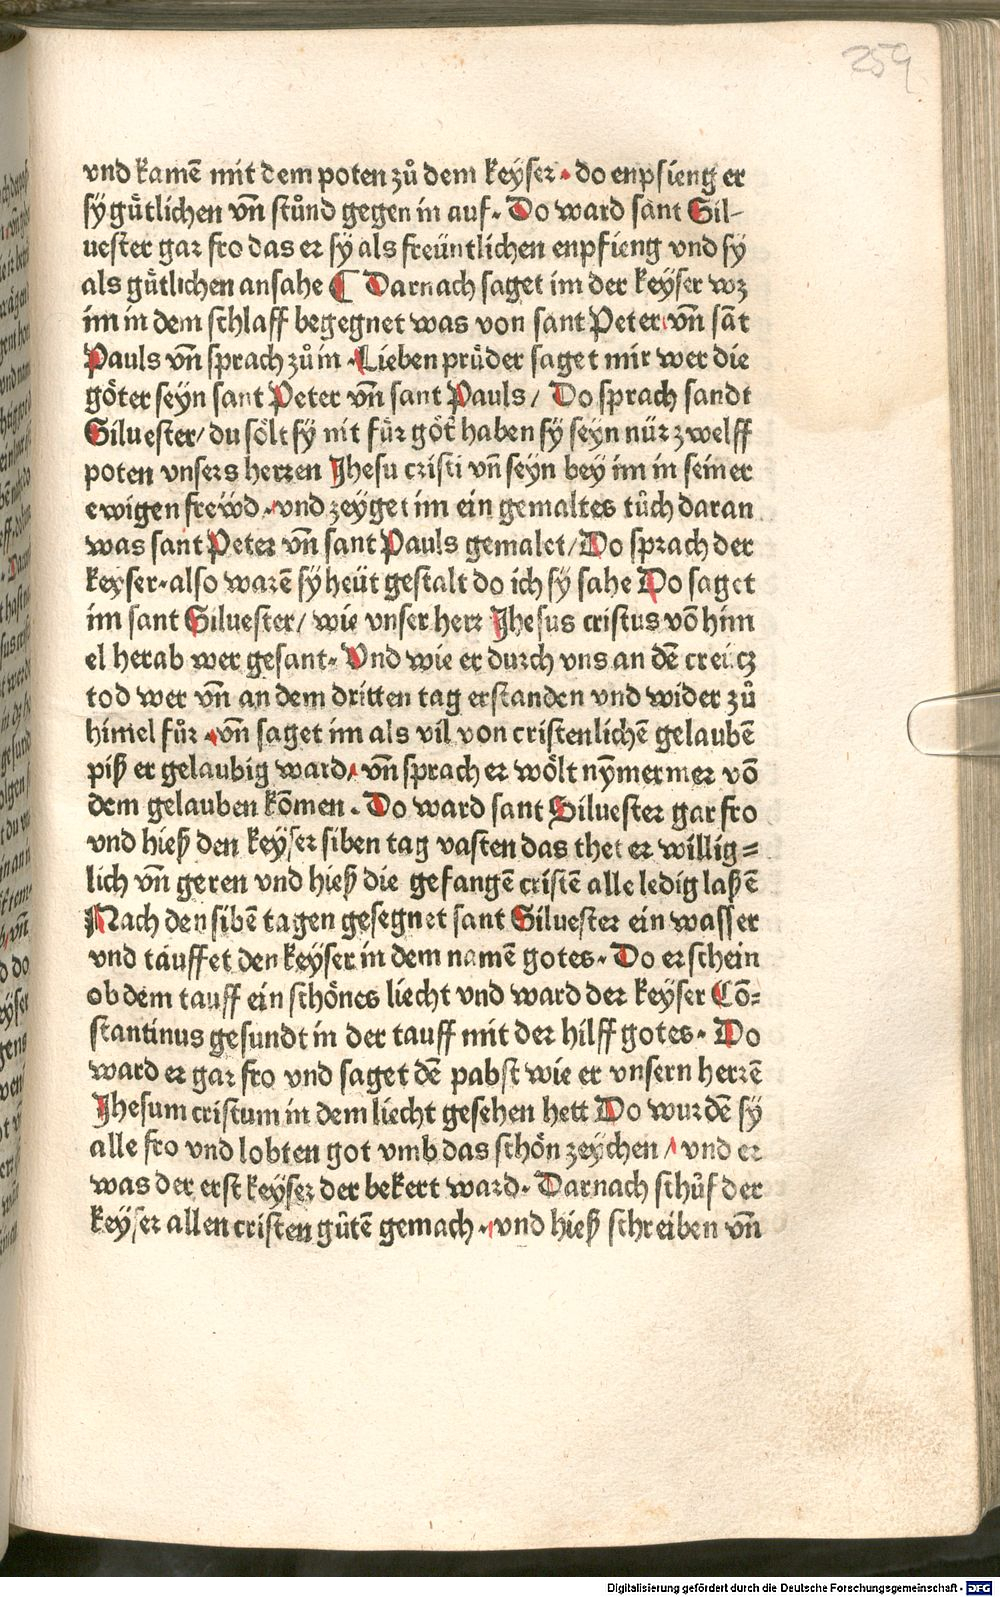 259
vnd kamē mit dem poten zů dem keyser. do enpfieng er
sÿ gütlichen vñ stůnd gegen in auf. Do ward sant Sil-
uester gar fro das er sÿ als freüntlichen enpfieng vnd sÿ
als gütlichen ansahe ¶ Darnach saget im der keÿser wz
im in dem schlaff begegnet was von sant Peter vñ sāt
Pauls vñ sprach zů in. Lieben prüder saget mir wer die
göter seyn sant Peter vñ sant Pauls / Do sprach sandt
Siluester/ du sölt sÿ nit für göt haben sÿ seyn nür zwelff
poten vnsers herren Jhesu cristi vñ seyn bey im in seiner
ewigen frewd. vnd zeyget im ein gemaltes tůch daran
was sant Peter vñ sant Pauls gemalet/ Do sprach der
keyser. also warē sÿ heüt gestalt do ich sÿ sahe Do saget
im sant Siluester/ wie vnser herr Jhesus cristus vō him
el herab wer gesant. Vnd wie er durch vns an dē creücz
tod wer vñ an dem dritten tag erstanden vnd wider zů
himel fůr. vñ saget im als vil von cristenlichē gelaubē
piß er gelaubig ward, vñ sprach er wölt nȳmermer vō
dem gelauben kōmen. Do ward sant Siluester gar fro
vnd hieß den keyser siben tag vasten das thet er willig=
lich vñ geren vnd hieß die gefangē cristē alle ledig laßē
Nach den sibē tagen gesegnet sant Siluester ein wasser
vnd tauffet den keÿser in dem namē gotes. Do erschein
ob dem tauff ein schönes liecht vnd ward der keyser Cō=
stantinus gesundt in der tauff mit der hilff gotes. Do
ward er gar fro vnd saget dē pabst wie er vnsern herrē
Jhesum cristum in dem liecht gesehen hett Do wurdē sÿ
alle fro vnd lobten got vmb das schön zeÿchen / vnd er
was der erst keyser der bekert ward. Darnach schůf der
keÿser allen cristen gůtē gemach. vnd hieß schreiben vñ
Digitalisierung gefördert durch die Deutsche Forschungsgemeinschaft - DFG